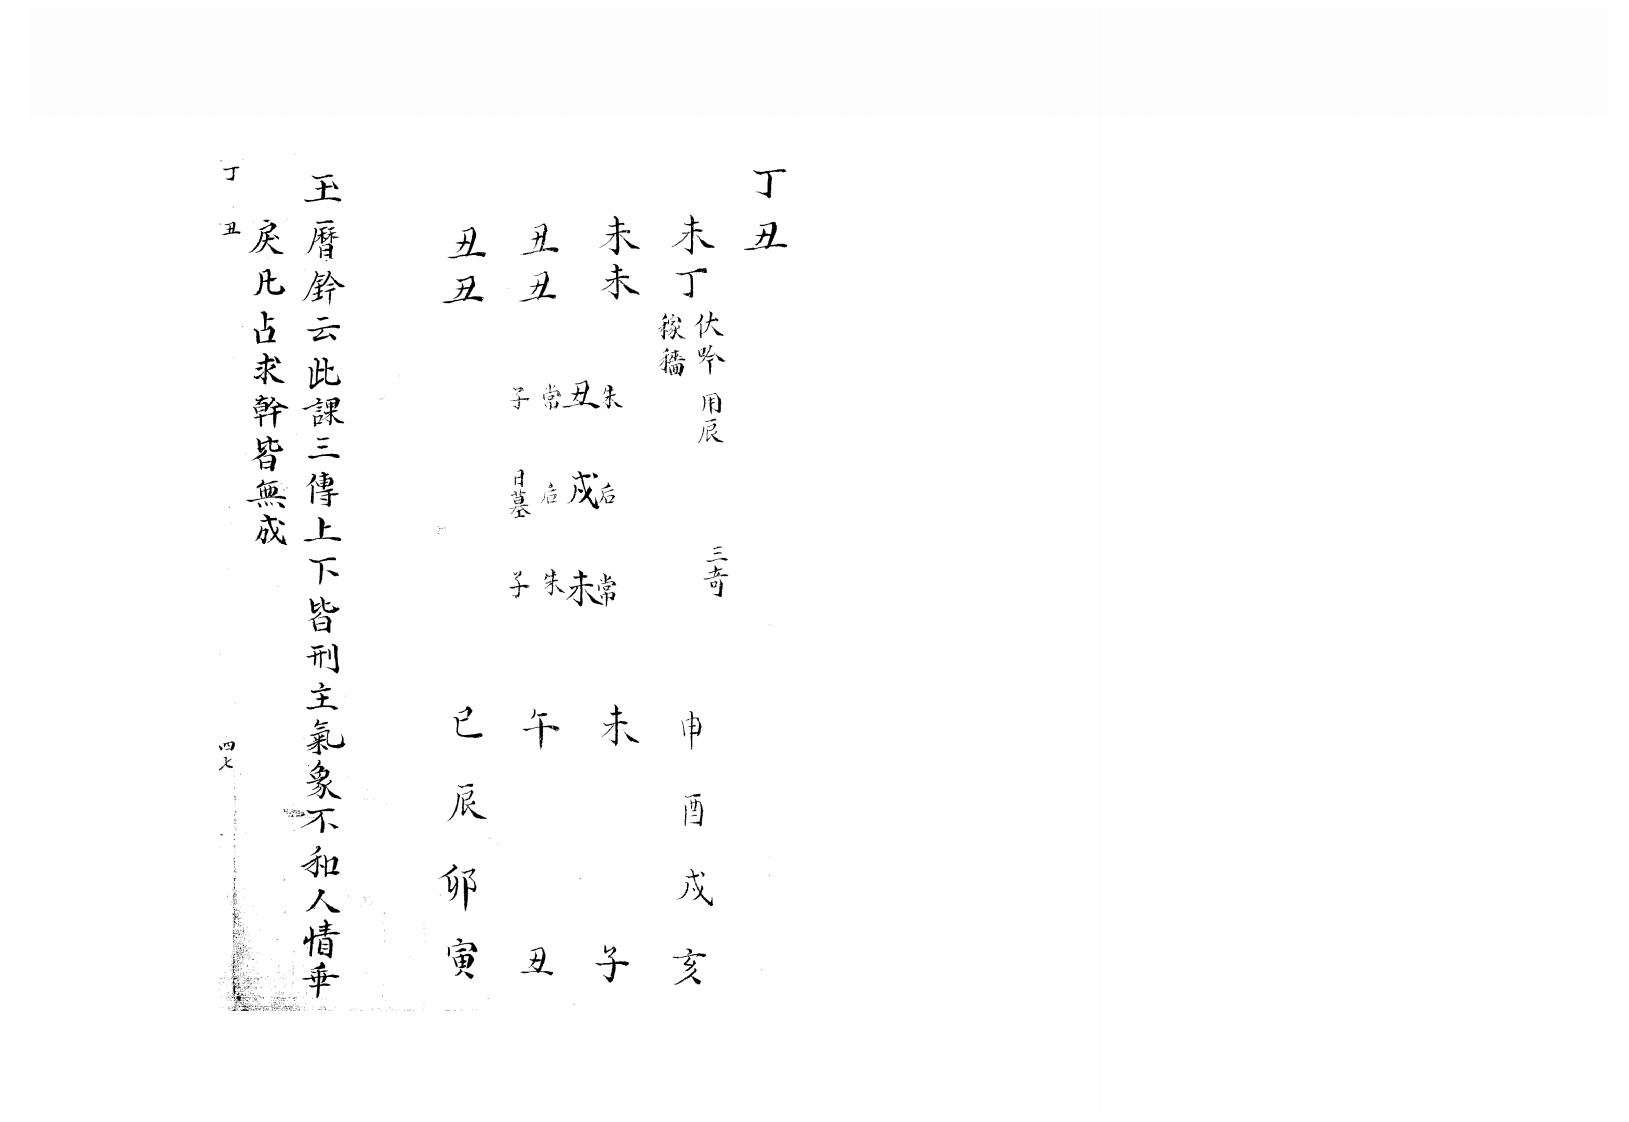 丁丑
未丁
未未
丑丑
丑丑
伏吟 用辰 三奇
稼穡
朱 后 常
丑 戌 未
常 后 朱
子 日墓 子
申酉戌亥
未 子
午 丑
巳辰卯寅
玉曆鈐云此課三傳上下皆刑主氣象不和人情乖
戾凡占求幹皆無成
丁丑 四七